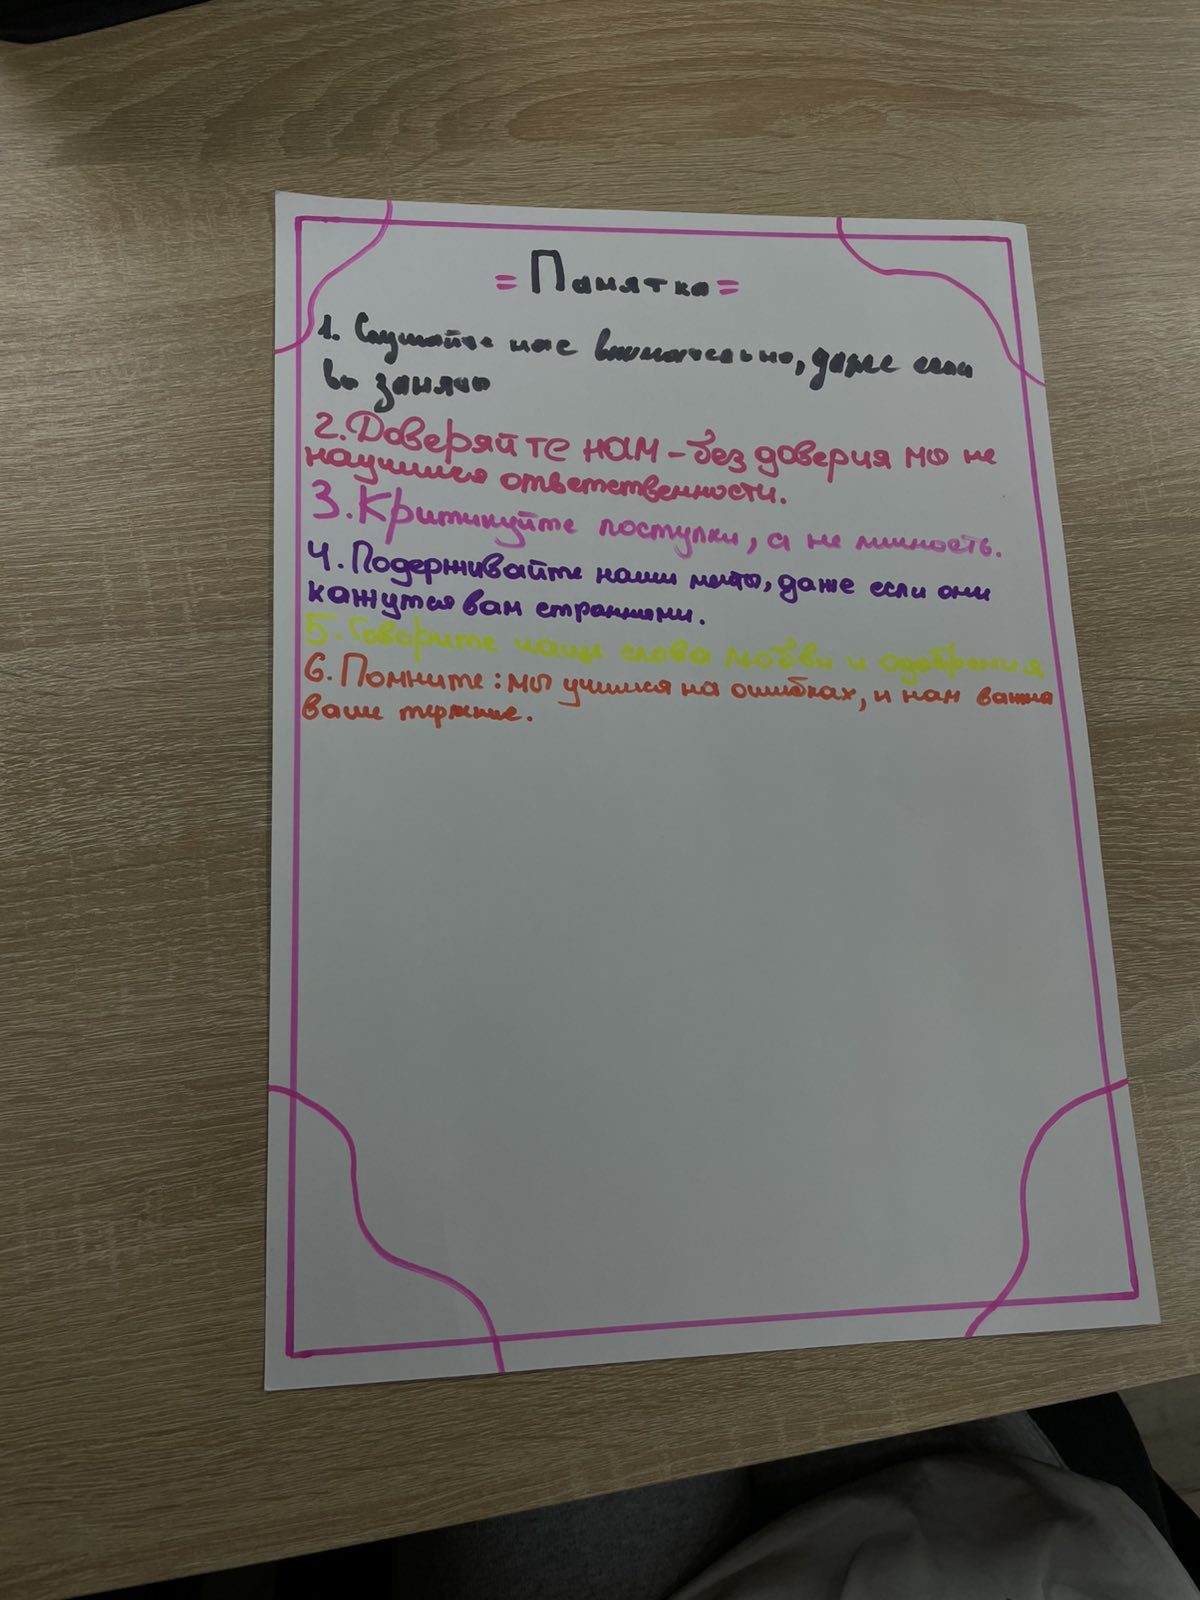 = Памятка =
1. Слушайте нас внимательно, даже если
вы заняты
2. Доверяйте нам - без доверия мы не
научимся ответственности.
3. Критикуйте поступки, а не личность.
4. Подерживайте наши мечты, даже если они
кажутся вам странными.
5. Говорите чаще слова любви и одобрения
6. Помните: мы учимся на ошибках, и нам важно
ваше терпение.